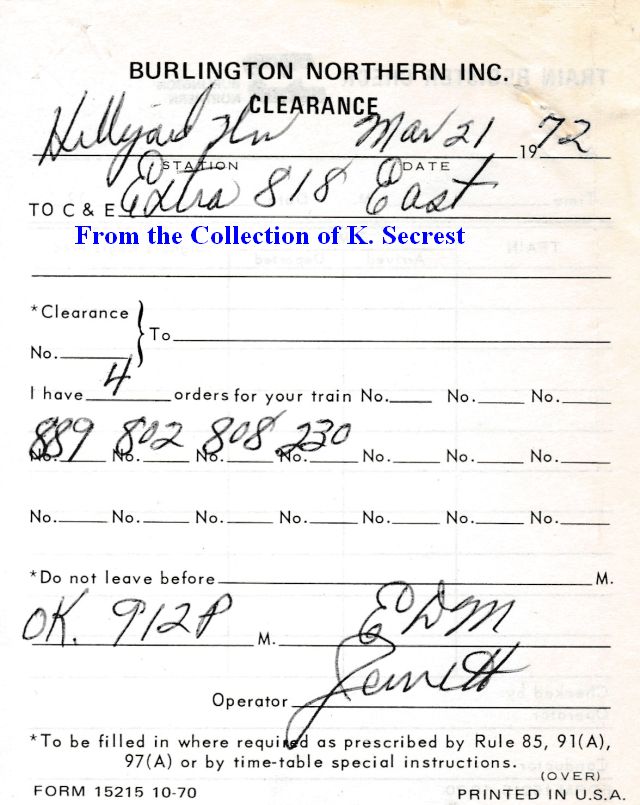 BURLINGTON NORTHERN INC.
CLEARANCE
Hillyard Mar 21 1972
STATION DATE
TO C & E Extra 818 East
From the Collection of K. Secrest
*Clearance
No. To
I have 4 orders for your train No. No. No.
889 802 808 230
No. No. No. No. No. No. No.
No. No. No. No. No. No. No.
*Do not leave before M.
OK. 912P M. EDM
Operator
*To be filled in where required as prescribed by Rule 85, 91(A),
97(A) or by time-table special instructions.
(OVER)
FORM 15215 10-70 PRINTED IN U.S.A.